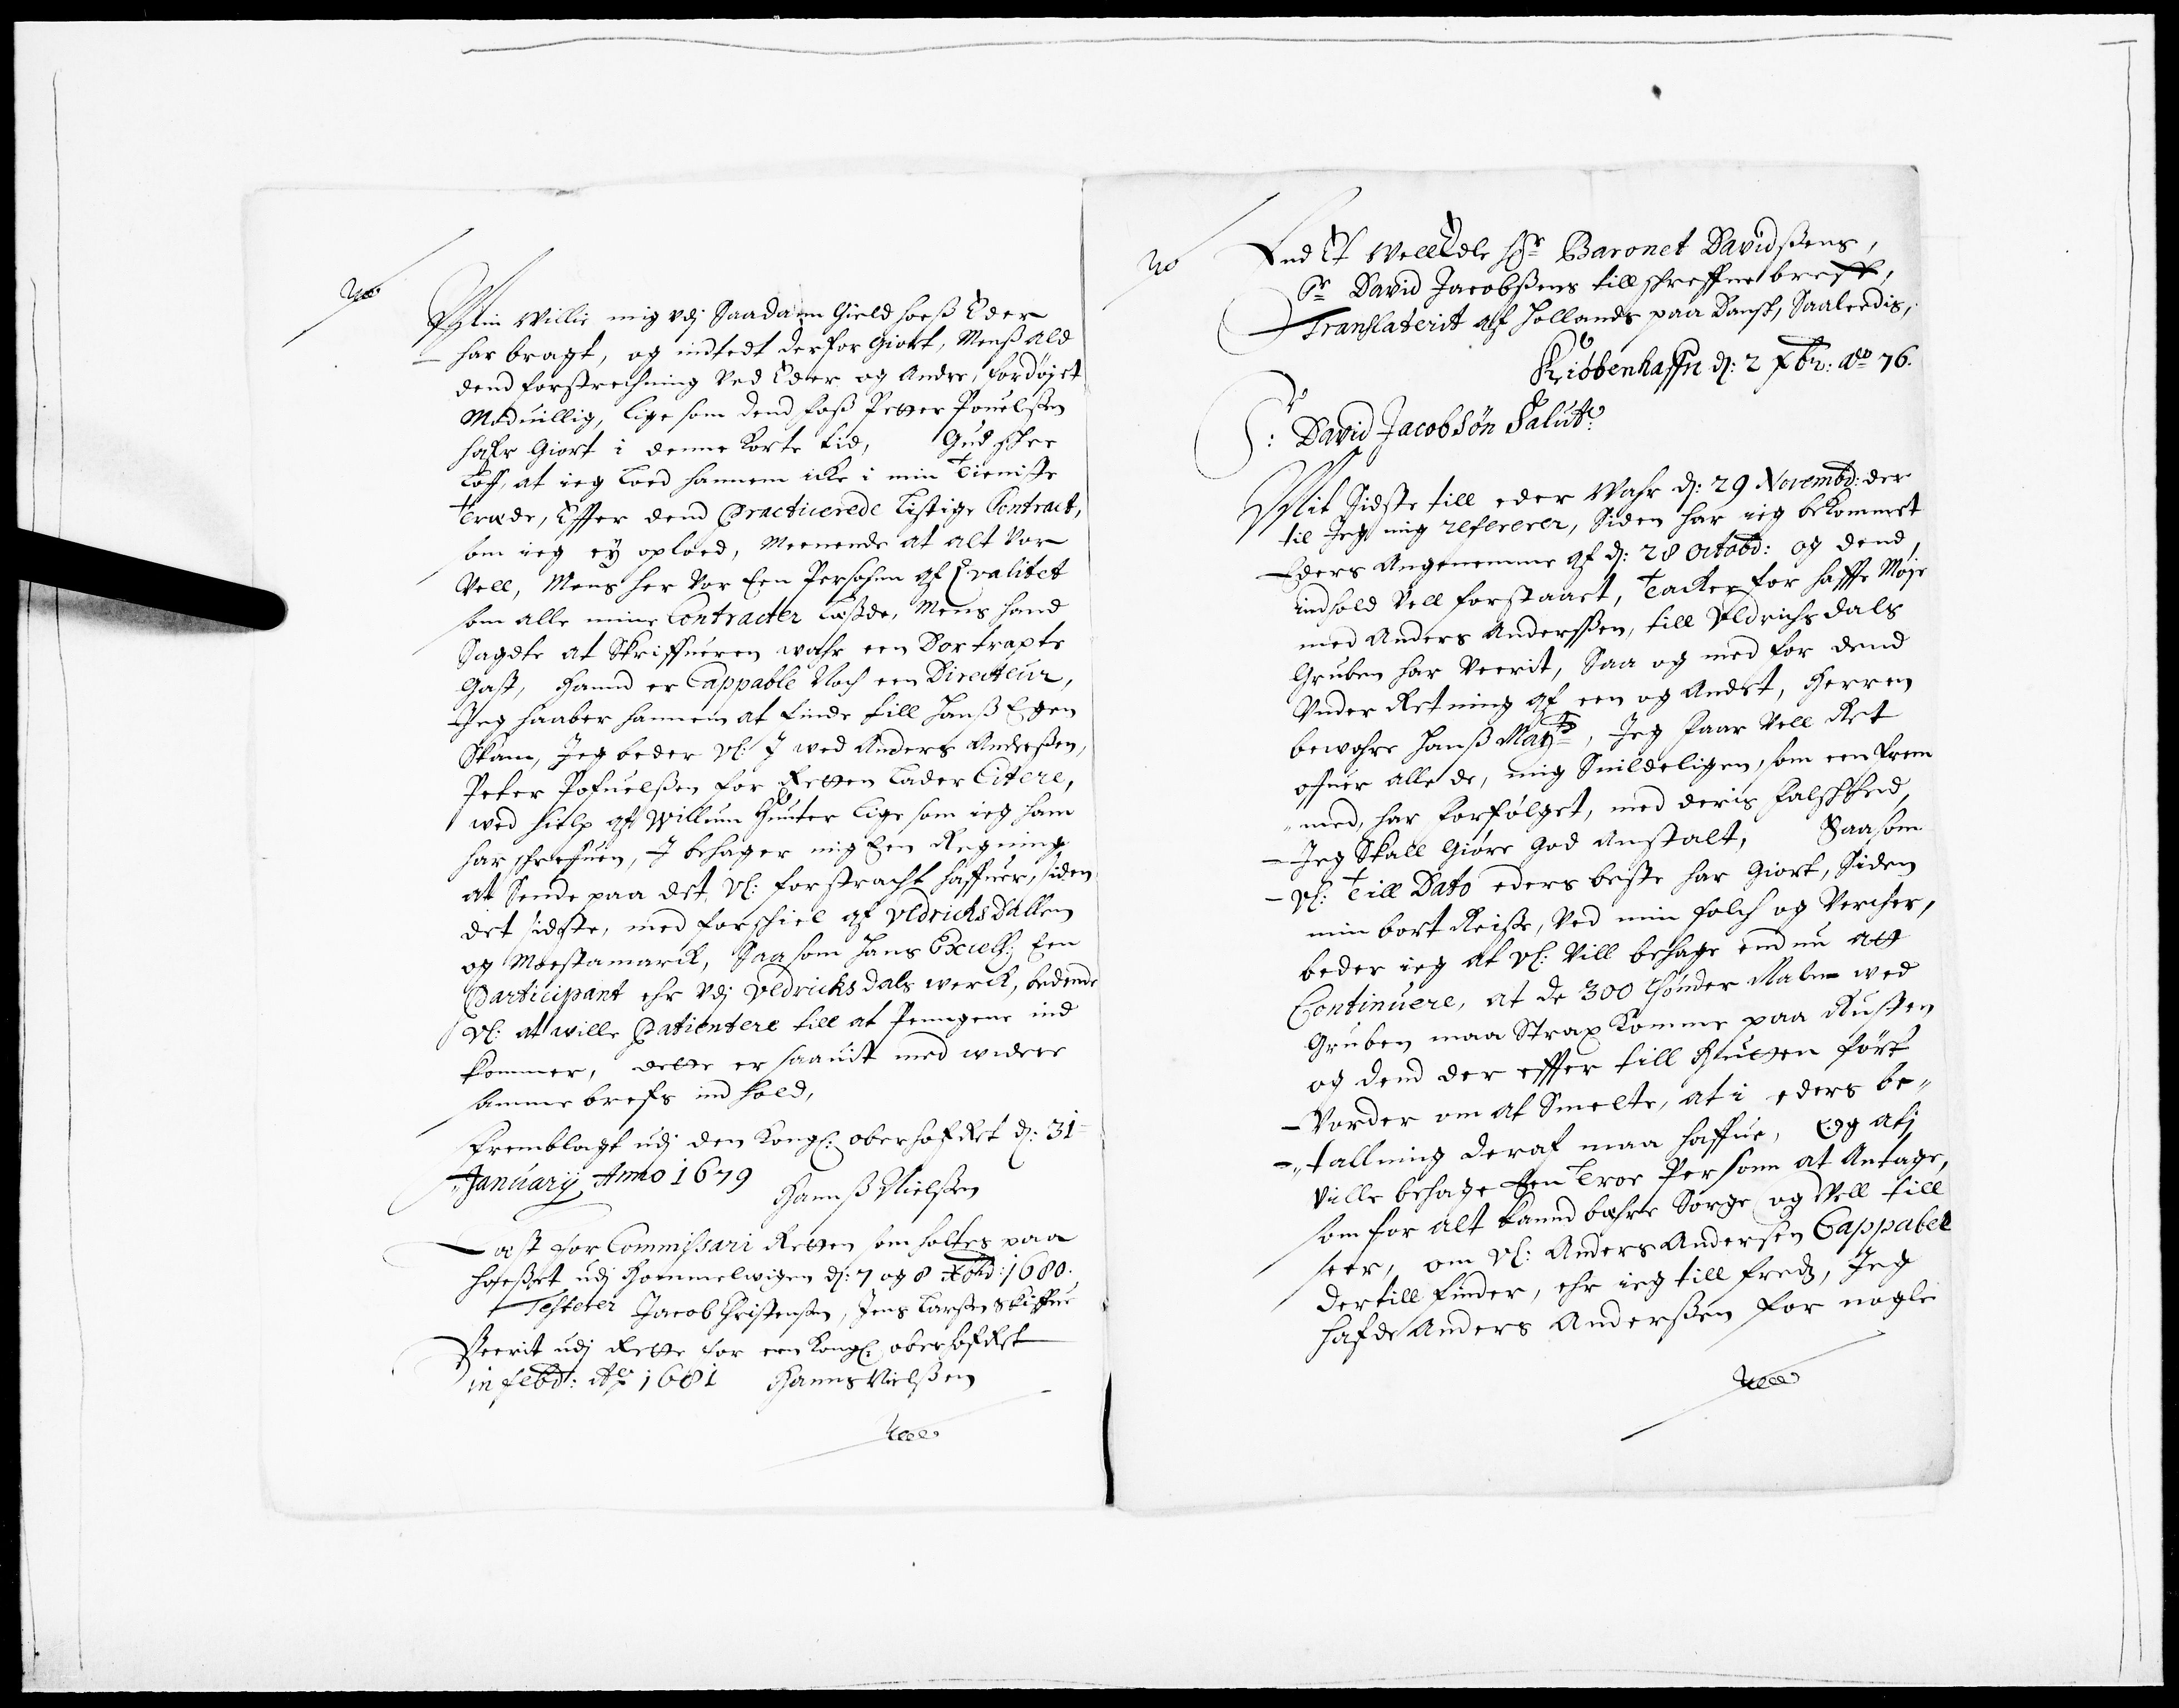 Min Willie mig vdj Saadann Gield hoeß Eder
har bragt, og indtedt derfor Giort, Menß ald
dend forstrechning ved Eder og Andre, fordøjet
Moduillig, lige som dend foß Petter Pouelßen
hafr Giort i denne korte tid, Gud skee
Loff, at ieg loed hannem icke i min Tieniste
træde, Effter dend Practicerede Listige Contract,
som ieg ey oploed, Meenende at alt var
vell, Mens her var Een Persohn af Qvalitet
som alle mine Contracter læste, Mens hand
Sagde at Skriffueren wahr een Dortrapte
Gast, hannd er Cappable Noch een Directeur,
Jeg haaber hannem at finde till hanß Egen
Skam, Jeg beder vl: J wed Anders Andersßen,
Peter Pofuelßen for Retten lader Citere,
wed hielp aff Willum Hunter lige som ieg ham
har schrefuen, J behager mig Een Regning
at Sende paa det, vl: forstracht haffuer, siden
det sidste, med forschiel af vldricksdallen
og Mostamarck, Saasom hans Excell: Een
Participant ehr vdj vldricksdals werck, bedende
vl: at wille Patientere till at Pengene ind
kommer, dette er saauit med widere
samme brefs indhold,
Fremblagt udj den Kongl: oberhofRet dj: 31
January Anno 1679
Hannß Nielßen
Læst for Commissari Retten som holtes paa
hoeßet udj Hommelwigen dj: 7 og 8 Xbd: 1680.
Testerer Jacob Christensen, Jens Larßen Skriffuer
Veerit udj Rette for een Kongl: oberhofRet
in febd: Ao 1681 Hanns Nielßen

End Et WellEdle Hr Baronet Davidßens,
Sr David Jacobßens till schreffne breff,
Translaterit aff Hollands paa Dansk, Saaleedis,
Kiøbenhaffn dj: 2 Xbr: Ao 76.
Sr: David Jacobsøn Salut
Mit Sidste till eder Wahr dj: 29 Novembd: der
til Jeg mig refererer, Siden har ieg bekommet
Eders Angenemme af dj: 28 Octobd: og dend
indhold vell forstaaet, Tacker for haffte Møje
med Anders Andersßen, till vldrichsdals
Gruben har veerit, Saa og med for dend
Vnder Retning af een og Andet, Herren
bewahre hanß Maytt, Jeg faar vell Ret
ofuer alle de, mig Snildeligen, som een frem
med, har forfølget, med deris falskhed,
Jeg Skall Giøre God Anstalt, Saasom
vl: till Dato eders beste har Giort, Siden
min bort Reise, ved min folch og vercher,
beder ieg at vl: vill behage end nu att
Continuere, at de 300 Tønder Malm wed
Gruben maa Strax komme paa Rusten
og dend der effter till Hytten ført
Vorder om at Smelte, at i eders be
tallning deraf maa haffue, Og atj
ville behage Een troe Persohn at Antage,
som for alt kannd bære Sorge og vell till
seer, om vl: Anders Andersen Cappabel
dertill finder, ehr ieg till fredz, Jeg
hafde Anders Andersßen for nogle